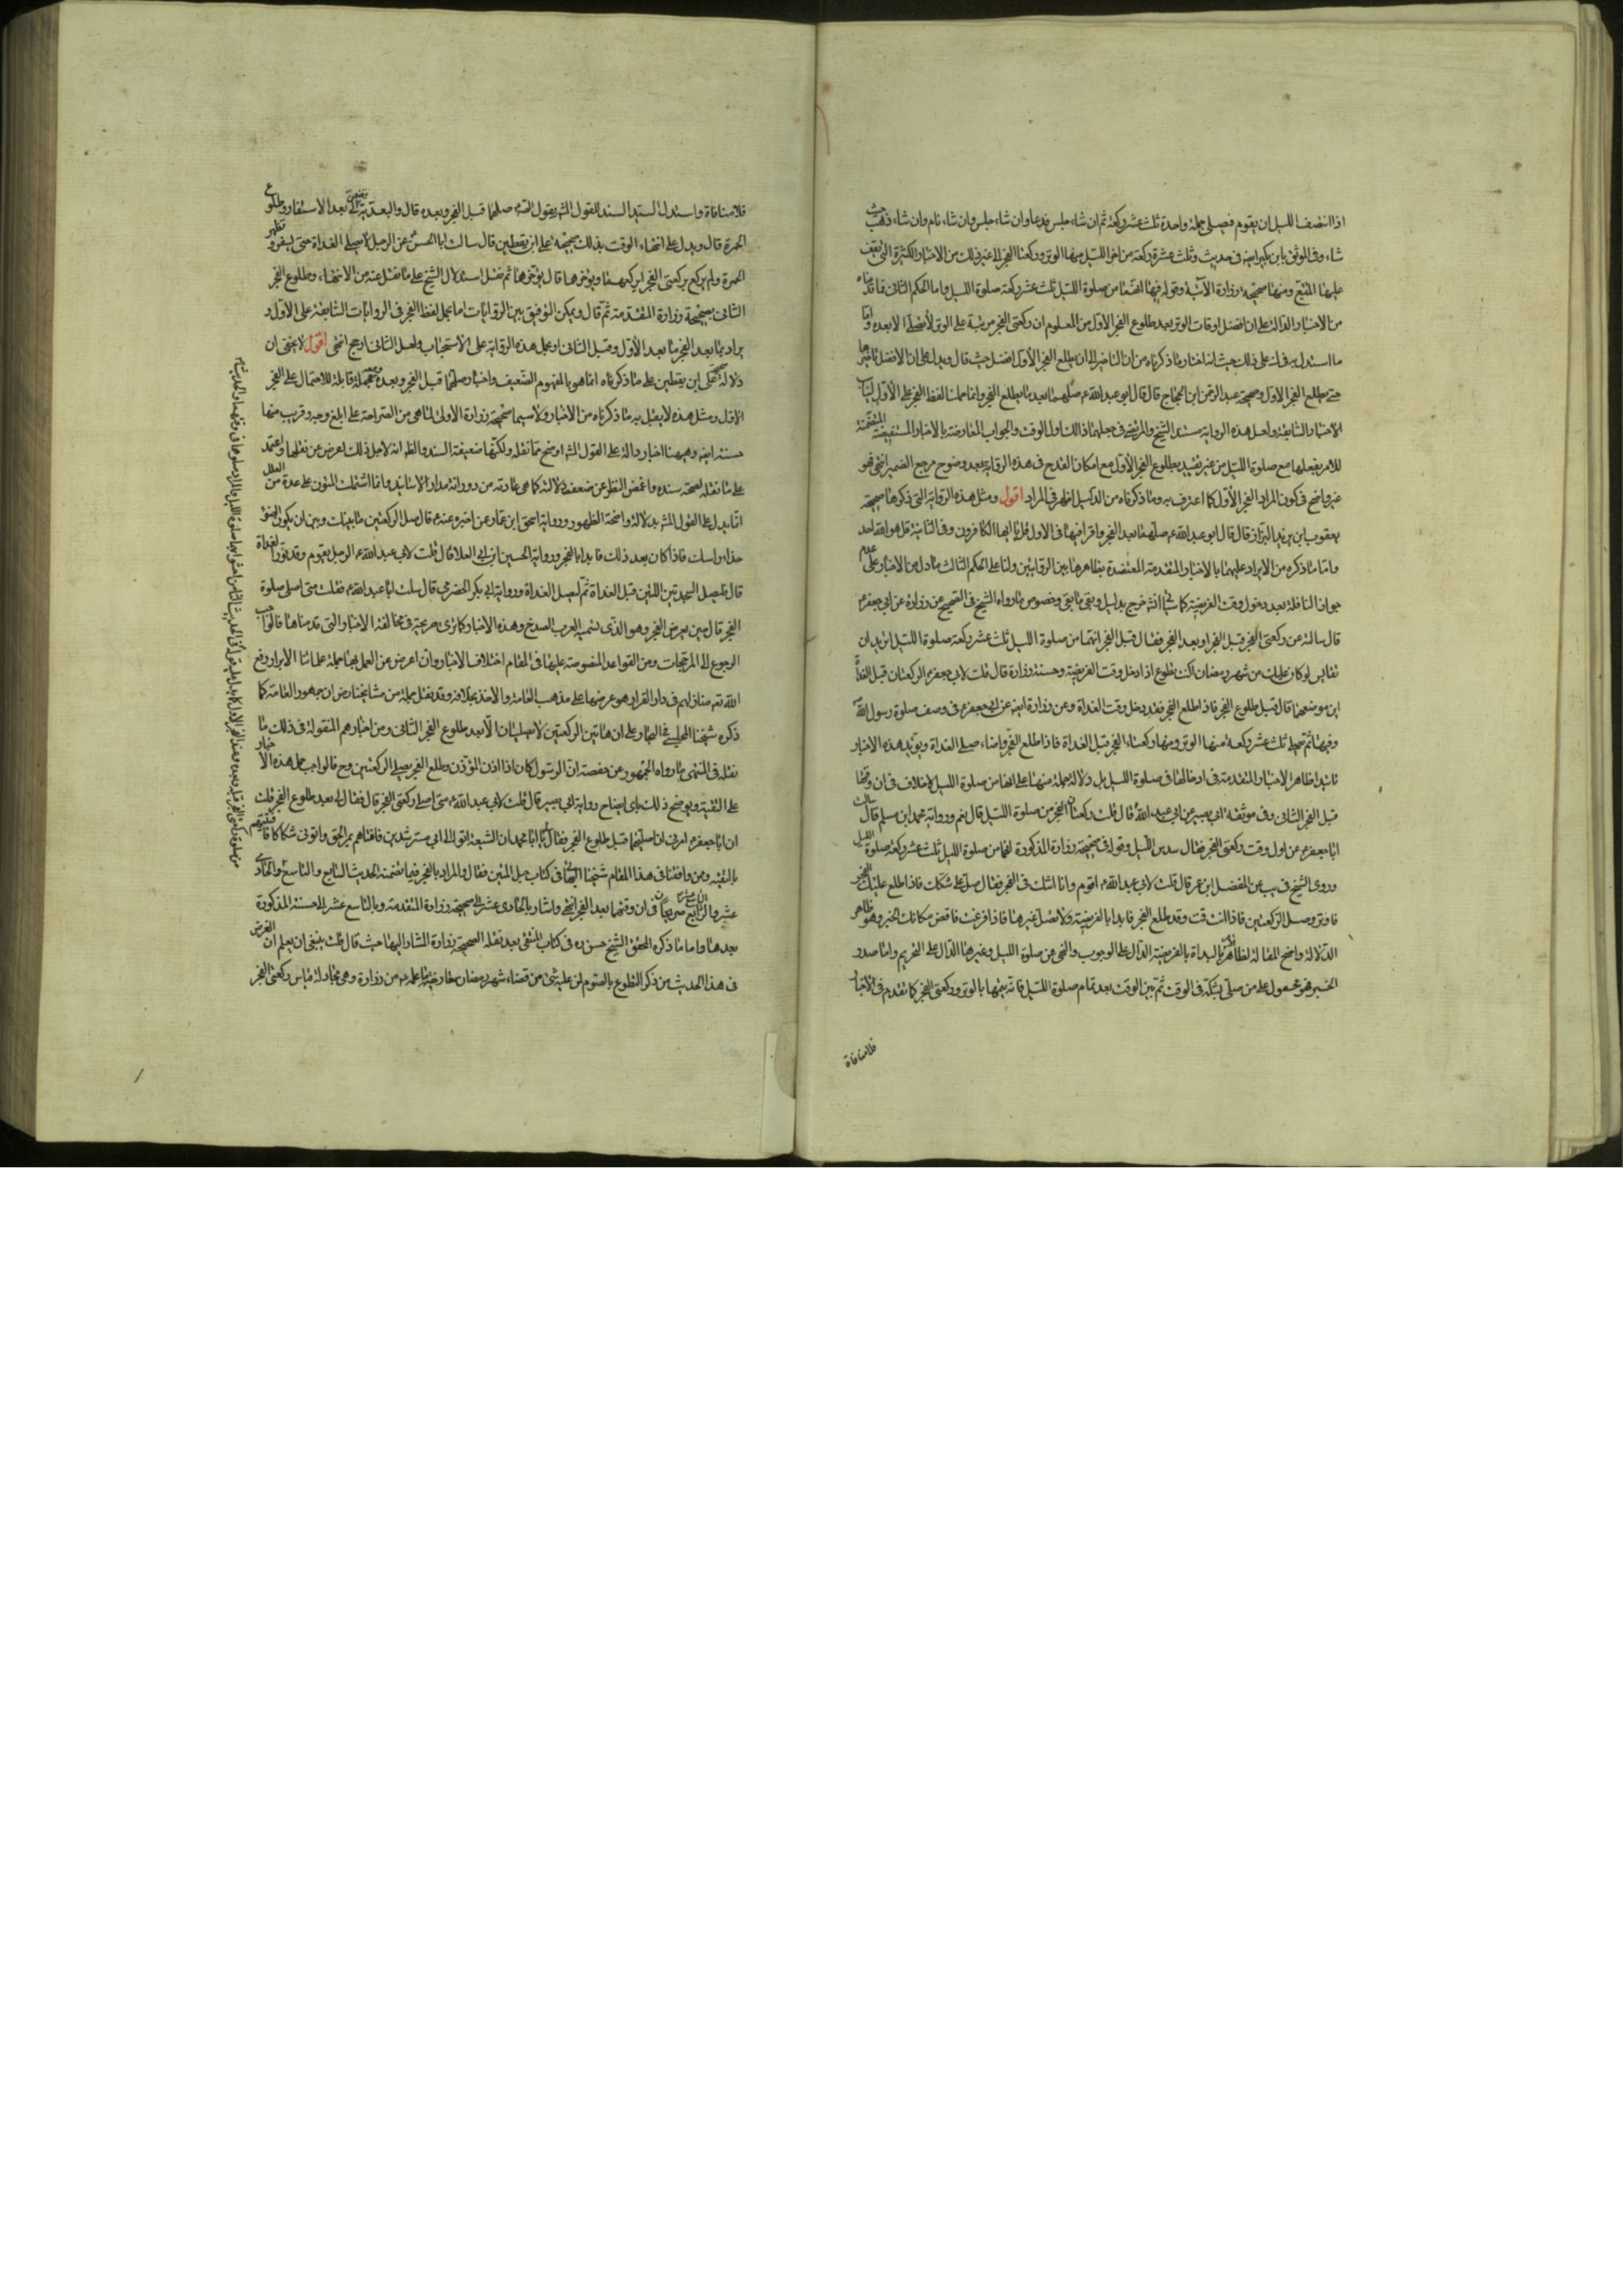 اذا انتصف الليل ان يقوم فيصلى جملة واحدة ثلث عشر ركعة ثم ان شاء جلس فدعا وان شاء جلس وان شاء نام وان شاء ذهب حيث
شاء وفى الموثق بابن بكير ايضه فى حديث وثلث عشرة ركعة من اخر الليل منها الوتر وركعتا الفجر الى غير ذلك من الاخبار الكثيرة التى يقف
عليها المتتبع ومنها صحيحة زرارة الآتية وقوله فيها انهما من صلوة الليل ثلث عشر ركعة صلوة الليل واما الحكم الثانى فلما قدمناه
من الاخبار الدالة على ان افضل اوقات الوتر بعد طلوع الفجر الاول من المعلوم ان ركعتى الفجر مرتبة على الوتر لا تصلى الا بعده واما
ما استدل به فى ك على ذلك حيث انه اختار ما ذكرناه من ان التاخير الى ان يطلع الفجر الأول افضل حيث قال ويدل على ان الافضل تاخيرها
حتى يطلع الفجر الاول صحيحة عبد الرحمن ابن الحجاج قال قال ابو عبد الله ع صلهما بعد ما يطلع الفجر وانما حملنا لفظ الفجر على الأول
الاخبار السابقة ولعل هذه الرواية مستند الشيخ والمرتضى فى جعلهما ذلك اول الوقت والجواب المعارضة بالاخبار المستفيضة المتضمنة
للامر بفعلها مع صلوة الليل من غير تقييد بطلوع الفجر الأول مع امكان القدح فى هذه الرواية بعدم وضوح مرجع الضمير انتهى فهو
غير واضح فى كون المراد الفجر الأول كما اعترف به وما ذكرناه من الدليل اظهر فى المراد اقول ومثل هذه الرواية التى ذكرها صحيحة
يعقوب ابن يزيد البزاز قال قال ابو عبد الله ع صلهما بعد الفجر واقرأ فيهما فى الاولى قل يا ايها الكافرون وفى الثانية قل هو الله احد
واما ما ذكره من الايراد عليهما بالاخبار المتقدمة المعتضدة بظاهرها بين الروايتين ولنا على الحكم الثالث ما دل من الاخبار على عدم
جواز النافلة بعد دخول وقت الفريضة كما سياتى انشه خرج بدليل وبقى ما بقى وخصوص ما رواه الشيخ فى الصحيح عن زرارة عن ابى جعفر ع
قال سالته عن ركعتى الفجر قبل الفجر او بعد الفجر فقال قبل الفجر انهما من صلوة الليل ثلث عشر ركعة صلوة الليل اتريد ان
تقايس لو كان عليك من شهر رمضان اكنت تطوع اذا دخل وقت الفريضة وحسنة زرارة قال قلت لابى جعفر ع الركعتان قبل الغداة
اين موضعهما قال قبل طلوع الفجر فاذا طلع الفجر فقد دخل وقت الغداة وعن زرارة ايضه عن ابى جعفر ع فى وصف صلوة رسول الله
وفيها ثم يصلى ثلث عشر ركعة منها الوتر ومنها ركعتا الفجر قبل الغداة فاذا طلع الفجر واضاء صلى الغداة ويؤيد هذه الاخبار
تاييدا ظاهرا الاخبار المتقدمة فى ادخالهما فى صلوة الليل بل دلالة جملة منها على انهما من صلوة الليل لا خلاف فى ان وقتها
قبل الفجر الثانى وفى موثقة ابى بصير عن ابى عبد الله قال قلت ركعتا الفجر من صلوة الليل قال نعم ورواية محمد ابن مسلم قال سالت
ابا جعفر ع عن اول وقت ركعتى الفجر فقال سدس الليل وقوله فى صحيحة زرارة المذكورة انهما من صلوة الليل ثلث عشر ركعة صلوة الليل
وروى الشيخ فى يب عن المفضل ابن عمر قال قلت لابى عبد الله ع اقوم وانا اشك فى الفجر فقال صل على شكك فاذا طلع عليك الفجر
فاوتر وصل الركعتين فاذا انت قمت وقد طلع الفجر فابدا بالفريضة ولا تصل غيرها فاذا فرغت فاقض مكانك الخبر وهو ظاهر
الدلالة واضح المقالة لظاهر البداة بالفريضة الدال على الوجوب والنهى عن صلوة الليل وغيرها الدال على التحريم واما صدر
الخبر فهو محمول على من صلى يشكه فى الوقت ثم تبين الوقت بعد تمام صلوة الليل فانه يتمها بالوتر وركعتى الفجر كما تقدم فى الاخبار
فلا منافاة
فلا منافاة واستدل السيد السند للقول المشه بقوله ع صلهما قبل الفجر وبعده قال والبعدية تقتضى بعد الاسفار وطلوع
الحمرة قال ويدل على انتهاء الوقت بذلك صحيحة على ابن يقطين قال سالت ابا الحسن ع عن الرجل لا يصلى الغداة حتى يسفر وتظهر
الحمرة ولم يركع ركعتى الفجر ايركعهما او يؤخرهما قال يؤخرهما ثم نقل استدلال الشيخ على ما نقل عنه من الانتهاء وطلوع الفجر
الثانى بصحيحة زرارة المتقدمة ثم قال ويمكن التوفيق بين الروايات اما بحمل لفظ الفجر فى الروايات السابقة على الأول و
يراد بما بعد الفجر ما بعد الأول وقبل الثانى او بحمل هذه الرواية على الاستحباب ولعل الثانى ارجح انتهى اقول لا يخفى ان
دلالة صحيحة على ابن يقطين على ما ذكرناه انما هو بالمفهوم الضعيف واخبار صلهما قبل الفجر وبعده مجملة قابلة للاحتمال على الفجر
الاول ومثل هذه لا يقابل به ما ذكرناه من الاخبار ولا سيما صحيحة زرارة الاولى لما هى من الصراحة على ابلغ وجه وقريب منها
حسنته ايضه وههنا اخبار دالة على القول المشه اوضح مما نقله ولكنها ضعيفة السند والظه انه لاجل ذلك اعرض عن نقلها واعتمد
على ما نقله لصحة سنده واغمض النظر عن ضعف دلالته كما هى عادته من دورانه مدار الاسانيد وان اشتملت المتون على عدة من العلل
انما يدل على القول المشه بدلالة واضحة الظهور ورواية اسحق ابن عمار عن اخبره عنه ع قال صل الركعتين ما بينك وبين ان يكون الضوء
حذاء راسك فاذا كان بعد ذلك فابدا بالفجر ورواية الحسين ابن ابى العلا قال قلت لابى عبد الله ع الرجل يقوم وقد نور الغداة
قال فليصل السجدتين اللتين قبل الغداة ثم ليصل الغداة ورواية ابى بكر الحضرمى قال سالت ابا عبد الله ع فقلت متى اصلى صلوة
الفجر قال حين يعرض الفجر وهو الذى تسميه العرب الصديع وهذه الاخبار كما ترى صريحة فى مخالفة الاخبار التى قدمناها فالواجب
الرجوع الى المرجحات ومن القواعد المنصوصة عليها فى المقام اختلاف الاخبار وان اعرض عن العمل بها جملة علمائنا الابرار رفع
الله تعه منازلهم فى دار القرار هو عرضها على مذهب العامة والاخذ بخلافه وقد نقل جملة من مشايخنا رض ان جمهور العامة كما
ذكره شيخنا المجلسى فى البحار على ان هاتين الركعتين لا تصليان الا بعد طلوع الفجر الثانى ومن اخبارهم المنقولة فى ذلك ما
نقله فى المنتهى ما رواه الجمهور عن حفصة ان الرسول كان اذا اذن المؤذن وطلع الفجر يصلى الركعتين وح فالواجب حمل هذه الاخبار
على التقية ويوضح ذلك باى ايضاح رواية ابى بصير قال قلت لابى عبد الله ع متى اصلى ركعتى الفجر قال فقال لى بعد طلوع الفجر قلت
ان ابا جعفر ع امرنى ان اصليهما قبل طلوع الفجر فقال يا ابا محمد ان الشيعة اتوا الى ابى مسترشدين فافتاهم بمر الحق واتونى شكاكا فافتيتهم
بالتقية وممن وافقنا فى هذا المقام شيخنا البهائى فى كتاب حبل المتين فقال والمراد بالفجر فيما تضمنه الحديث السابع والتاسع والحادى
عشر والرابع عشر صريحان فى ان وقتهما بعد الفجر انتهى واشار بالحادى عشر الى صحيحة زرارة المتقدمة وبالتاسع عشر الى حسنته المذكورة
بعدها واما ما ذكره المحقق الشيخ حسن ره فى كتاب المنتقى بعد نقله الصحيحة زرارة المشار اليها حيث قال قلت ينبغى ان يعلم ان الغرض
فى هذا الحديث من ذكر التطوع بالصوم لمن عليه شئ من قضاء شهر رمضان معارضة ما علمه ع من زرارة وهى مجادلة قياس ركعتى الفجر